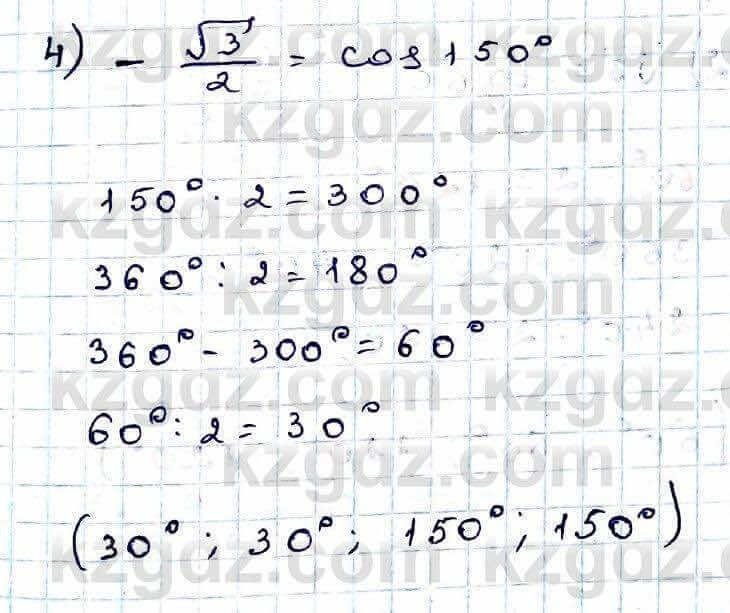 4) - √3/2 = cos 150°
150° · 2 = 300°
360° : 2 = 180°
360° - 300° = 60°
60° : 2 = 30°.
(30° ; 30° ; 150° ; 150°)
kzgdz.com